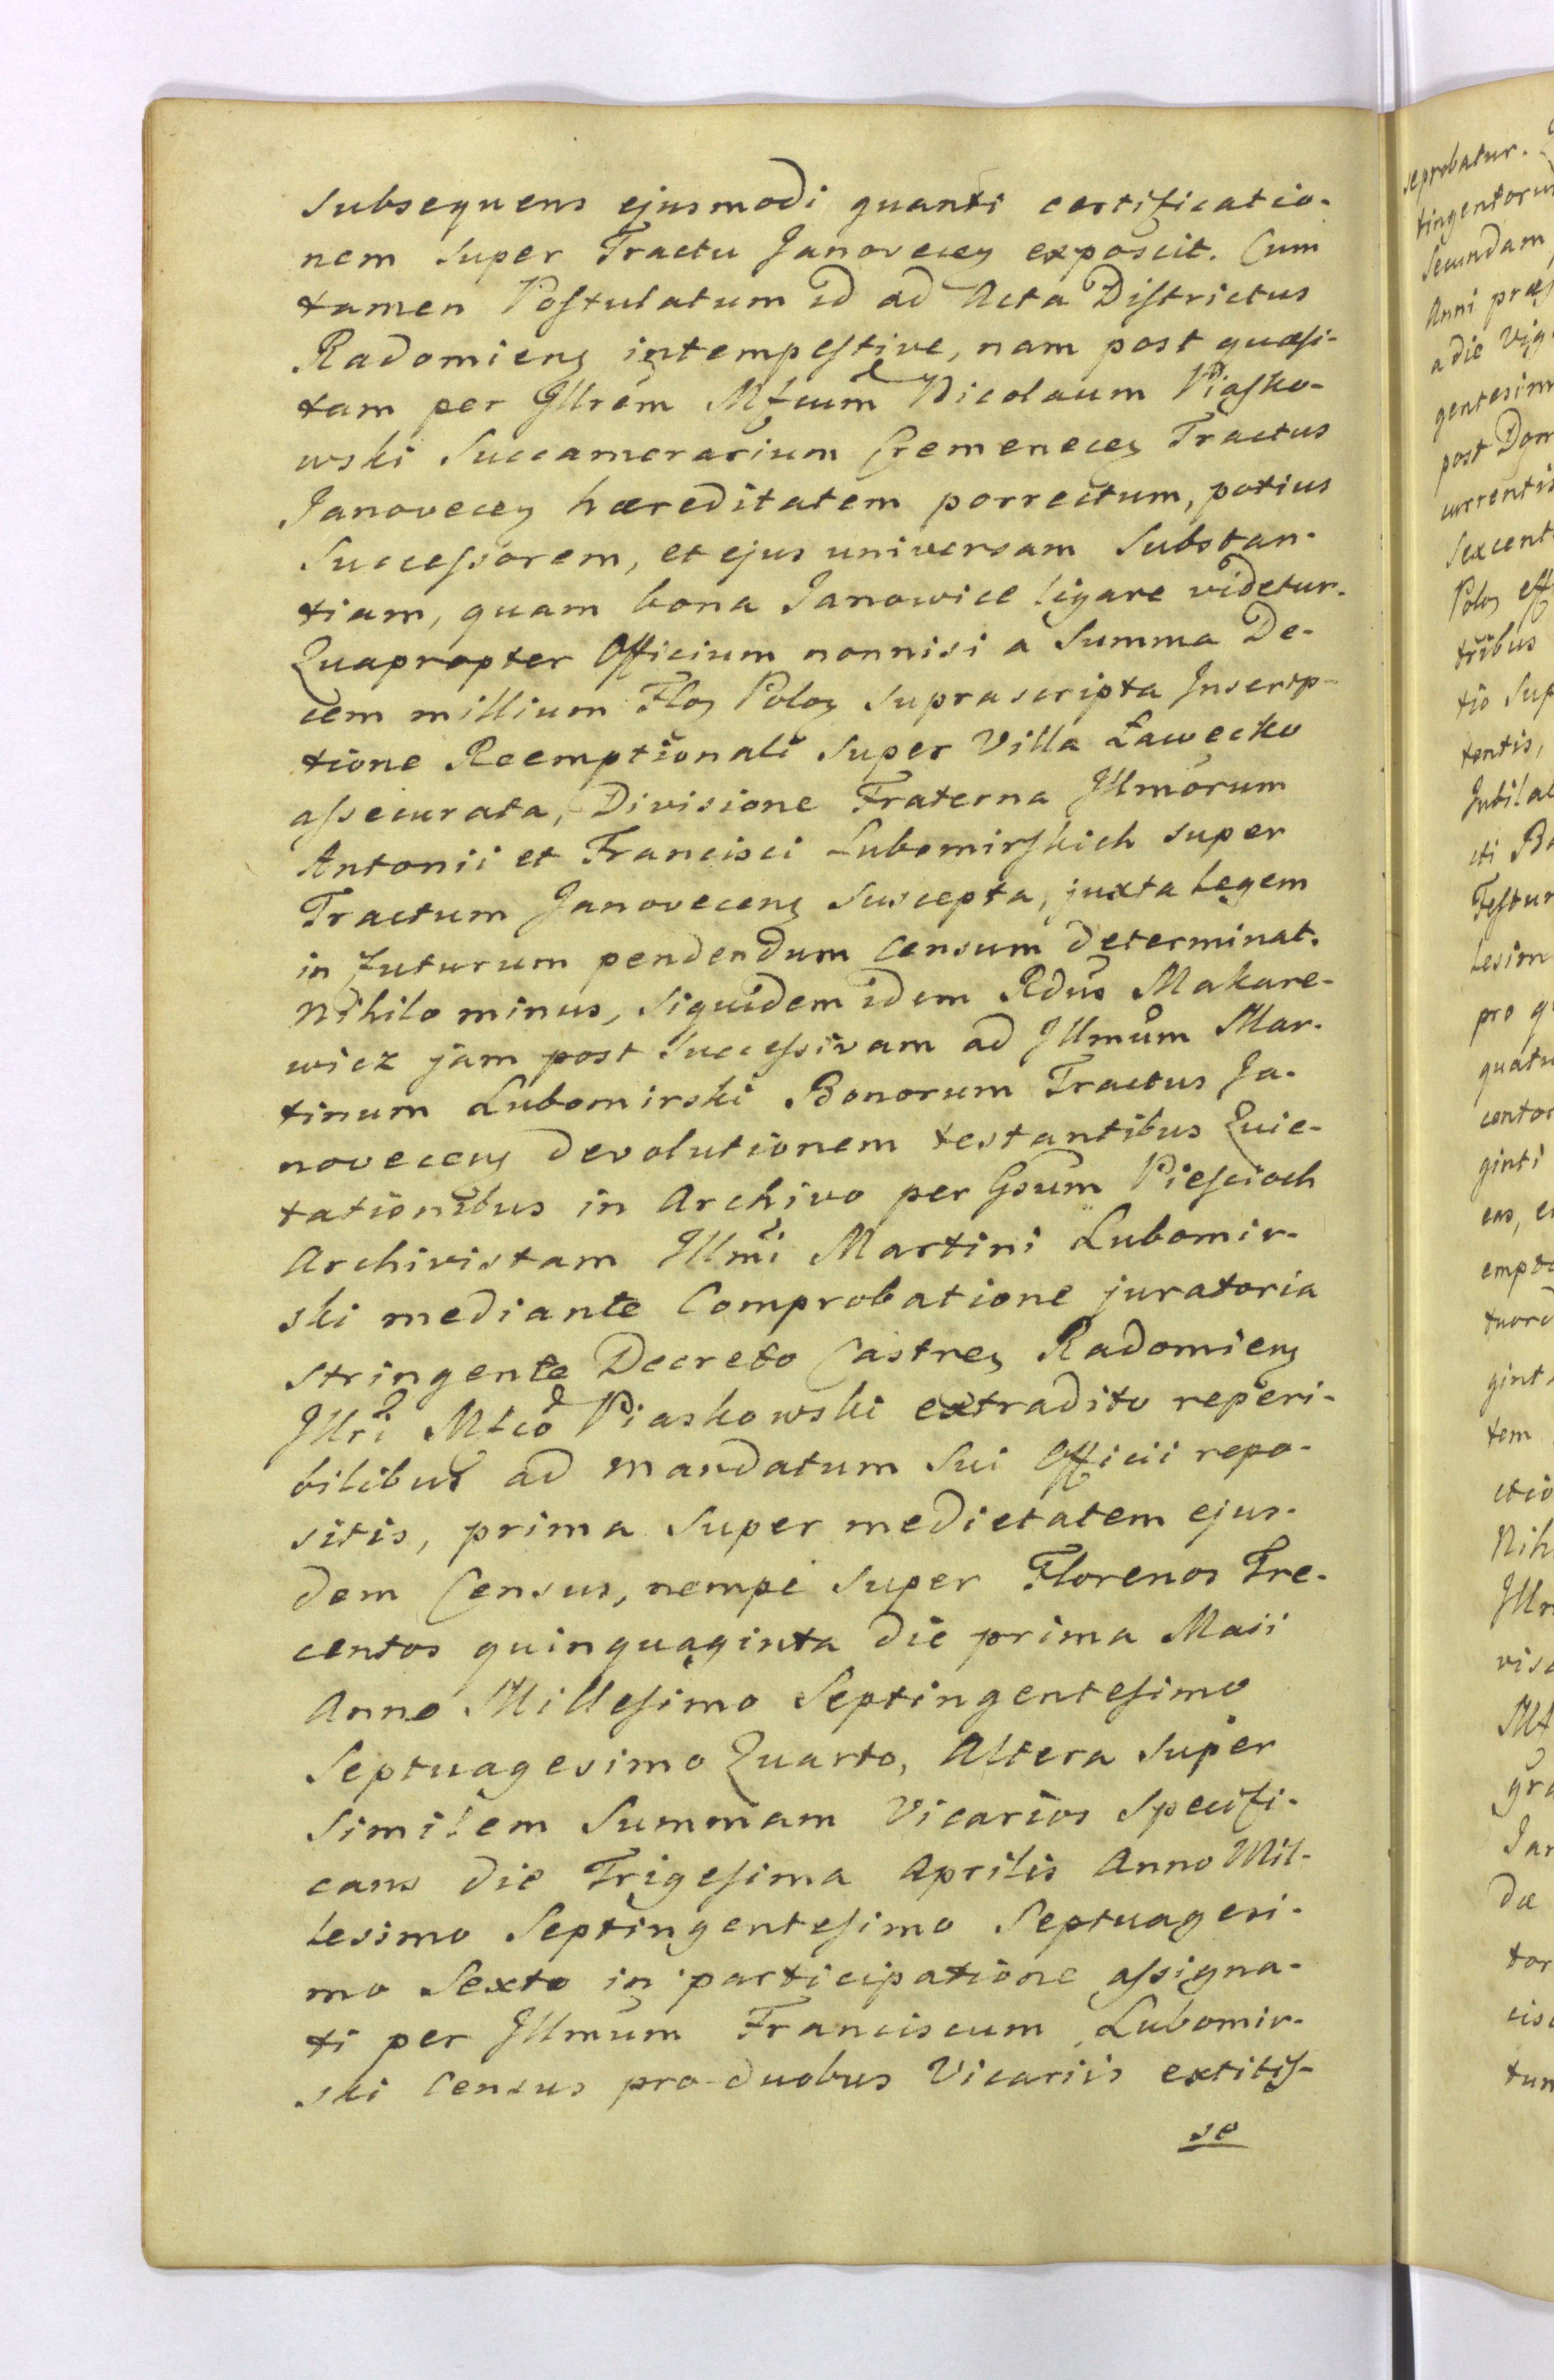 subsequens ejusmodi quanti certificatio-
nem super Tractu Janovecen exposcit. Cum
tamen Postulatum id ad Acta Districtus
Radomiens intempestive, nam post quæsi-
tam per Illrem Mfcum Nicolaum Piasko-
wski Succamerarium Cremenecen Tractus
Janovecen hæreditatem porrectum, potius
Successorem, et ejus universam Substan-
tiam, quam bona Janowice ligare videtur.
Quapropter Officium nonnisi a Summa De-
cem millium Flos Polos suprascripta Inscrip-
tione Reemptionali super Villa Ławecko
assecurata, Divisione Fraterna Illmorum
Antonii et Francisci Lubomirskich super
Tractum Janovecens suscepta, juxta legem
in futurum pendendum Censum determinat.
Nihilo minus, siquidem idem Rdus Makare-
wicz jam post successivam ad Illmum Mar-
tinum Lubomirski Bonorum Tractus Ja-
novecens devolutionem testantibus Quie-
tationibus in Archivo per Gsum Piescioch
Archivistam Illmi Martini Lubomir-
ski mediante Comprobatione juratoria
stringente Decreto Castren Radomiens
Illri Mfco Piaskowski extradito reperi-
bilibus ad mandatum sui Officii repo-
sitis, prima super medietatem ejus-
dem Census, nempe super Florenos Tre-
centos quinquaginta die prima Maii
Anno Millesimo Septingentesimo
Septuagesimo Quarto, Altera super
similem Summam Vicarios specifi-
cans die Trigesima Aprilis Anno Mil-
lesimo Septingentesimo Septuagesi-
mo Sexto in participatione assigna-
ti per Illmum Franciscum Lubomir-
ski Census pro duobus Vicariis extitis-
se
reprobatur.
tingentorum
Secundam
Anni præs
a die Vig
gentesim
post Dom
currentis
Sexcent
Polos eff
tribus
tio sup
tentis,
Jubilat
cti Bo
Festur
lesim
pro q
quatu
centor
ginti
eas, e
empt
tuord
gint
tem
ctio
Nih
Illr
visc
Mf
gra
Jar
dæ
tor
cisc
tun